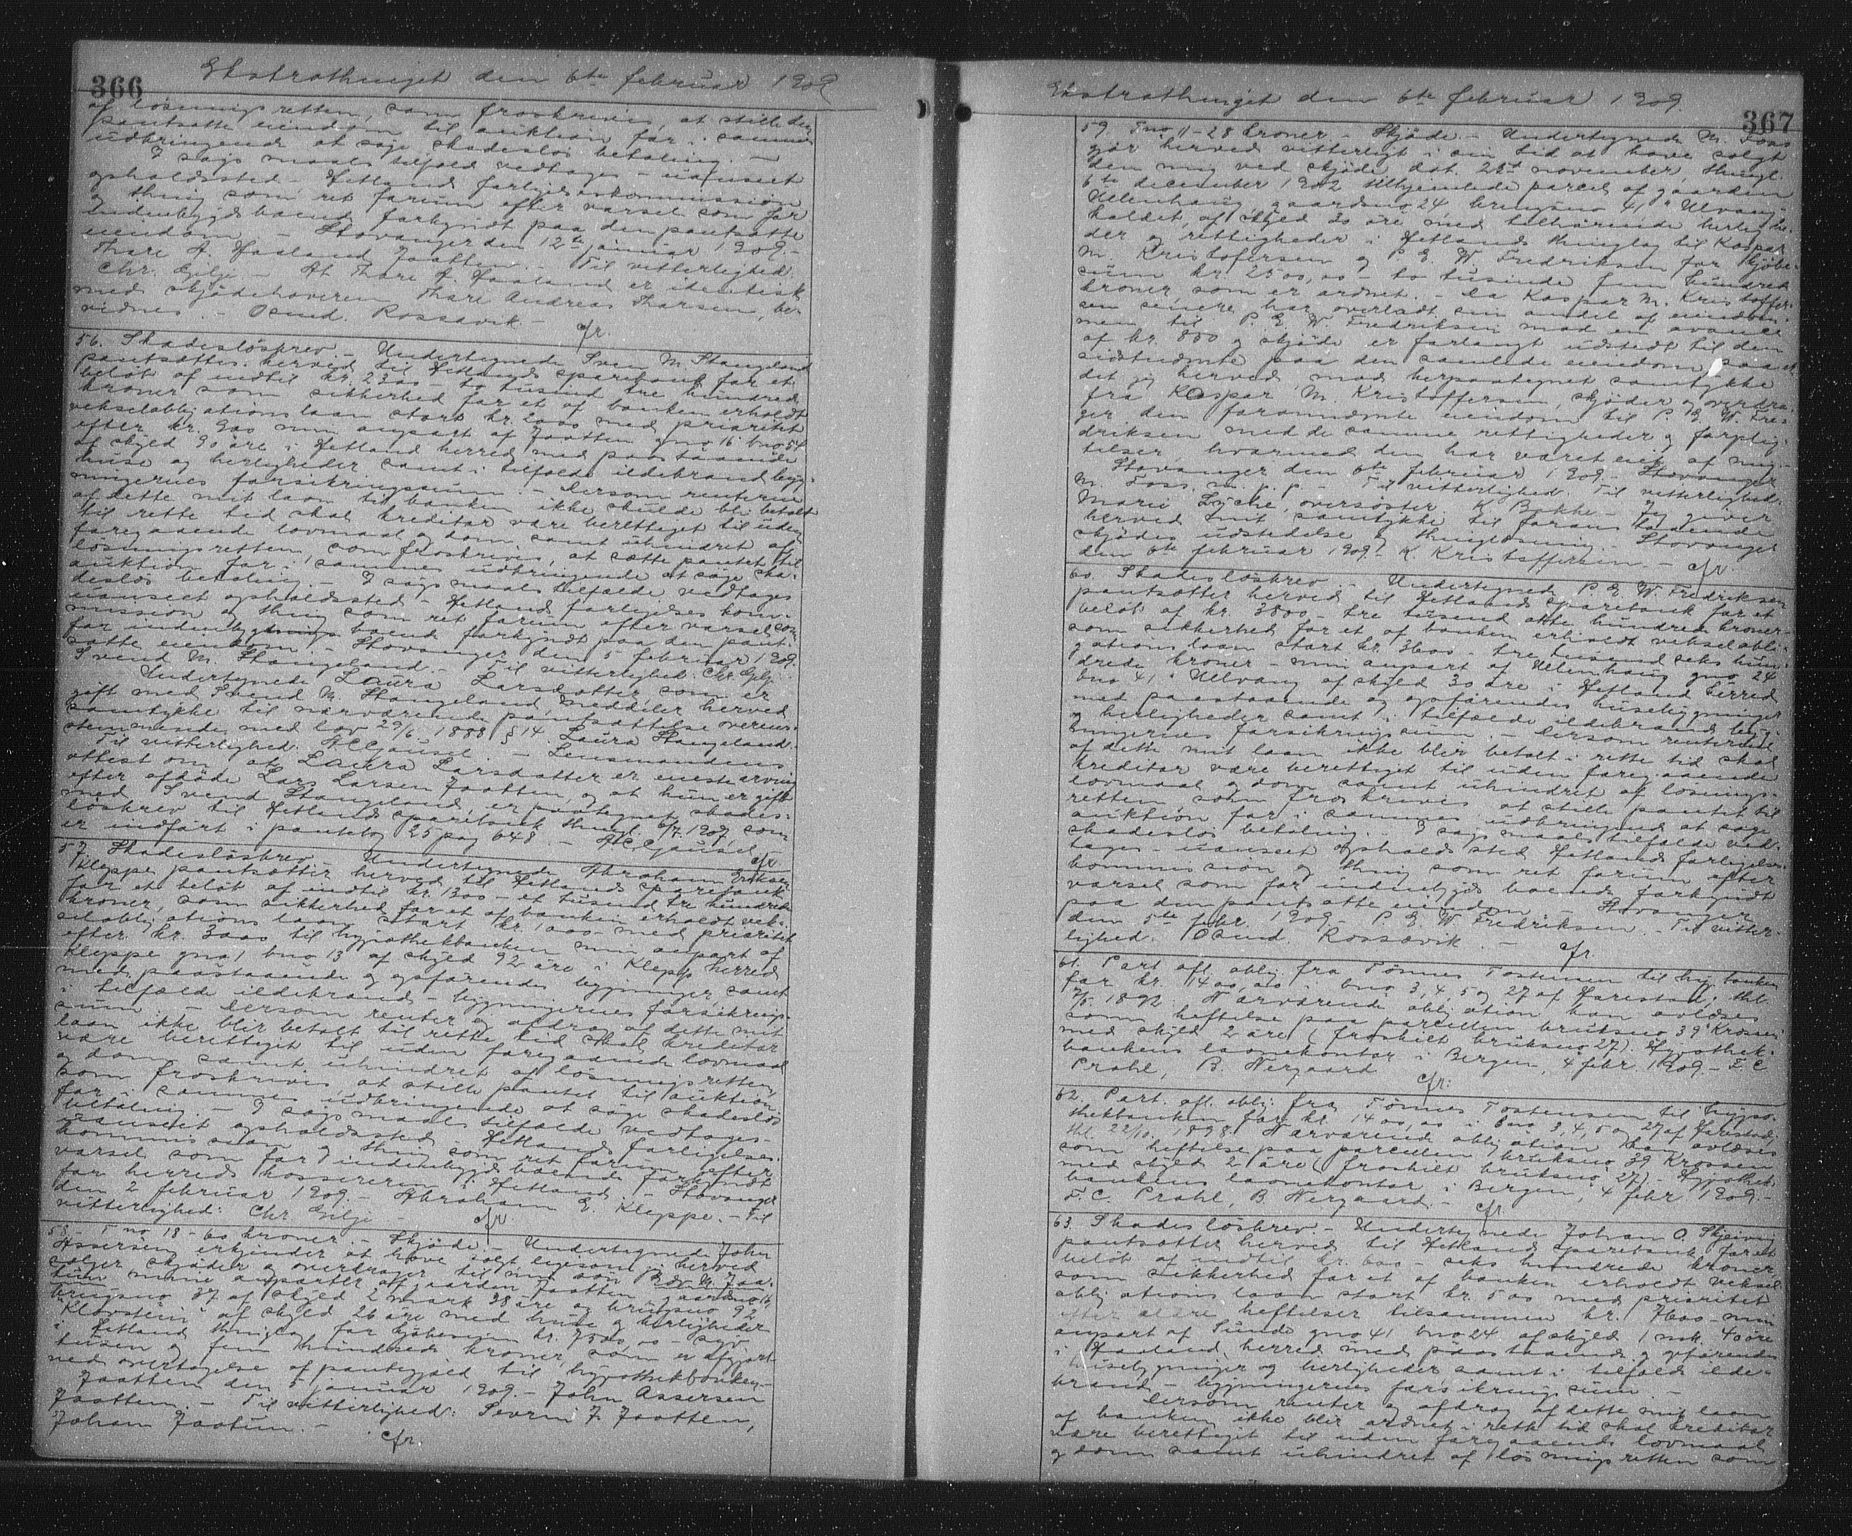 366
Ekstrathinget den 6te februar 1909
af løsningsretten, som fraskrives, at stille den
pantsatte eiendom til auktion for i sammes
udbringende at søge skadesløs betaling. –
I søgsmaals tilfælde vedtages – uanseet
opholdssted – Hetland forligelseskommission
og thing som ret forum efter varsel som for
indenbygds boende forkyndt paa den pantsatte
eiendom. – Stavanger den 12te januar 1909 –
Thore A. Haaland Jaatten. – Til vitterlighed:
Chr. Gilje – At Thore A. Haaland er identisk
med skjødehaveren Thore Andreas Thorsen, be-
vidnes. – Osmd. Rossavik – cfr.
56. Skadesløsbrev – Undertegnede Sven M. Stangeland
pantsætter herved til Hetlands sparebank for et
beløb af indtil kr. 2300 – to tusind tre hundrede
kroner som sikkerhed for et af banken erholdt
vekselobligationslaan stort kr. 2000 med prioritet
efter kr. 900 min anpart af Jaatten gno 16 bno 54
af skyld 90 øre i Hetland herred med paastaaende
huse og herligheder samt i tilfælde ildebrand byg-
ningernes forsikringssum. – Dersom renterne
af dette mit laan til banken ikke skulde bli betalt
til rette tid skal kreditor være berettiget til uden
foregaaende lovmaal og dom, samt uhindret af
løsningsretten, som fraskrives, at sætte pantet til
auktion for i sammes udbringende at søge ska-
desløs betaling. – I søgsmaalstilfælde vedtages
uanseet opholdssted – Hetland forligelses kom-
mission og thing som ret forum efter varsel som
for indenbygds boende forkyndt paa den pant-
satte eiendom. – Stavanger den 5 februar 1909.
Svend M. Stangeland – Til vitterlighed: Chr. Gilje.
Undertegnede Laura Larsdatter som er
gift med Svend M. Stangeland meddeler herved
samtykke til nærværende pantsættelse overens-
stemmende med lov 29/6 – 1888 § 14. Laura Stangeland.
Til vitterlighed: HCGausel – Lensmandens
attest om at Laura Larsdatter er enestearving
efter afdøde Lars Larsen Jaatten, og at hun er gift
med Svend Stangeland, er paategnet skades-
løsbrev til Hetlands sparebank thingl. 6/7 1907 som
er indført i pantebog 25 pag 648. – HCGausel – cfr
57. Skadesløsbrev – Undertegnede Abraham Eriksen
Kleppe pantsætter herved til Hetlands sparebank
for et beløb af indtil kr. 1300 – et tusend tre hundrede
kroner, som sikkerhed for et af banken erholdt vek-
selobligationslaan stort kr. 1000 med prioritet
efter kr. 3000 til hypothekbanken min anpart af
Kleppe gno 1 bno 13 af skyld 92 øre i Klepp herred
med paastaaende og opførende bygninger samt
i tilfælde ildebrand – bygningernes forsikrings-
sum. – Dersom renter og afdrag af dette mit
laan ikke blir betalt til rette tid skal kreditor
være berettiget til uden foregaaende lovmaal
og dom samt uhindret af løsningsretten
som fraskrives at stille pantet til auktion
for i sammes udbringende at søge skadesløs
betaling. – I søgsmaals tilfælde vedtages –
uanseet opholdssted – Hetland forligelses-
kommission og thing som ret forum efter
varsel som for indenbygds boende forkyndt
for herredskassereren i Hetland. – Stavanger
den 2 februar 1909. – Abraham E. Kleppe. – Til
vitterlighed: Chr Gilje – cfr
58. – Tno 18 – 60 kroner. – Skjøde. – Undertegnede John
Assersen erkjender at have solgt ligesom jeg herved
sælger skjøder og overdrager til min søn Jaa-
tun mine anparter af gaarden Jaatten gaardsno 16,
brugsno 37 af skyld 2 mark 38 øre og brugsno 92
"Kløvstein" af skyld 26 øre med huse og herligheder
i Hetland thinglag for kjøbesum kr. 7500,00 – syv
tusen og fem hundrede kroner, som er afgjort
ved overtagelse af pantegjæld til hypothekbanken –
Jaatten den 5 januar 1909. – John Assersen
Jaatten. – Til vitterlighed: Severin J. Jaatten,
Johan Jaatun. – cfr.
367
Ekstrathinget den 6te februar 1909
59. Tno 11 – 28 kroner – Skjøde. – Undertegnede M. Foss
gjør herved vitterligt i sin tid at have solgt
den mig ved skjøde, dat. 28de november, thingl.
6te december 1902 tilhjemlede parcel af gaarden
Ullenhaug, gaardsno 24 brugsno 41 "Ulvang"
kaldet, af skyld 30 øre med tilhørende herlighe-
der og rettigheder i Hetlands thinglag til Kaspar
M. Kristofersen og P. E. W. Fredriksen for kjøbe-
sum kr. 2500,00 – to tusinde fem hundrede
kroner som er ordnet. – Da Kaspar M. Kristoffer-
sen senere har overladt sin andel af eiendom-
men til P. E. W. Fredriksen mod en avance
af kr. 800 og skjøde er forlangt udstedt til den
sidstnævnte paa den samlede eiendom, saa er
det jeg herved, med herpaategnet samtykke
fra Kaspar M. Kristoffersen, skjøder og overdra-
ger den forannævnte eiendom til P. E. W. Fre-
driksen med de samme rettigheder og forplig-
telser, hvormed den har været eiet af mig –
Stavanger den 6te februar 1909 – Stavanger
M. Foss, m. p. p. – Til vitterlighed: Til vitterlighed:
Marie Lyche, oversøster. K. Bakke. – Jeg giver
herved mit samtykke til foranstaaende
skjødes udstedelse og thinglæsning. – Stavanger
den 6te februar 1909. K Kristoffersen. – cfr
60. Skadesløsbrev. – Undertegnede P E W. Fredriksen
pantsætter herved til Hetlands sparebank for et
beløb af kr. 3800 – tre tusend otte hundrede kroner –
som sikkerhed for et af banken erholdt vekselobli-
gationslaan stort kr. 3600 – tre tusend seks hun-
drede kroner – min anpart af Ullenhaug gno 24
bno 41 "Ullvang" af skyld 30 øre i Hetland herred
med paastaaende og opførendes husebygninger
og herligheder samt i tilfælde ildebrand byg-
ningernes forsikringssum. – Dersom renterne
af dette mit laan ikke blir betalt i rette tid skal
kreditor være berettiget til uden foregaaende
lovmaal og dom samt uhindret af løsnings-
retten, som fraskrives at stille pantet til
auktion for i sammes udbringende at søge
skadesløs betaling. – I søgsmaals tilfælde ved-
tages – uanseet opholdssted Hetland forligelses-
kommission og thing som ret forum efter
varsel som for indenbygds boende forkyndt
paa den pantsatte eiendom. – Stavanger
den 5te febr. 1909 – P. E. W. Fredriksen – Til vitter-
lighed: Osmd Rossavik. – cfr
61. Part. afl. oblig. fra Tønnes Tostensen til hyp. banken
for kr. 1400,00 i bno 3, 4, 5 og 27 af Harestad, thl.
1892. Nærværende obligation kan avløses
som heftelse paa parcellen bruksno 39 "Krossen"
med skyld 2 øre (fraskilt bruksno 27). Hypothek-
bankens laanekontor i Bergen, 4 febr. 1909 – F. C
Prahl, B. Nergaard cfr.
62. Part. afl. oblig. fra Tønnes Tostensen til hypo-
thekbanken for kr. 1400,00 i bno 3, 4, 5 og 27 af Harestad,
thl. 22/10 1898. Nærværende obligation kan avløses
som heftelse paa parcellen bruksno 39 Krossen
med skyld 2 øre (fraskilt bruksno 27). – Hypothek-
bankens laanekontor i Bergen, 4 febr 1909. –
F. C. Prahl, B Nergaard. – cfr.
63. Skadesløsbrev – Undertegnede Johan O. Skjeiving
pantsætter herved til Hetland sparebank for et
beløb af indtil kr. 600 – seks hundrede kroner
som sikkerhed for et af banken erholdt veksel-
obligationslaan stort kr. 500 med prioritet
efter ældre heftelser tilsammen kr. 7600 – min
anpart af Sunde gno 41 bno 24 af skyld 1 mrk. 40 øre
i Haaland herred med paastaaende og opførendes
husebygninger og herligheder samt i tilfælde ilde-
brand – bygningernes forsikringssum. –
Dersom renter og afdrag af dette mit laan
af banken ikke blir ordnet i rette tid skal kreditor
være berettiget til uden foregaaende lovmaal
og dom samt uhindret af løsningsretten som